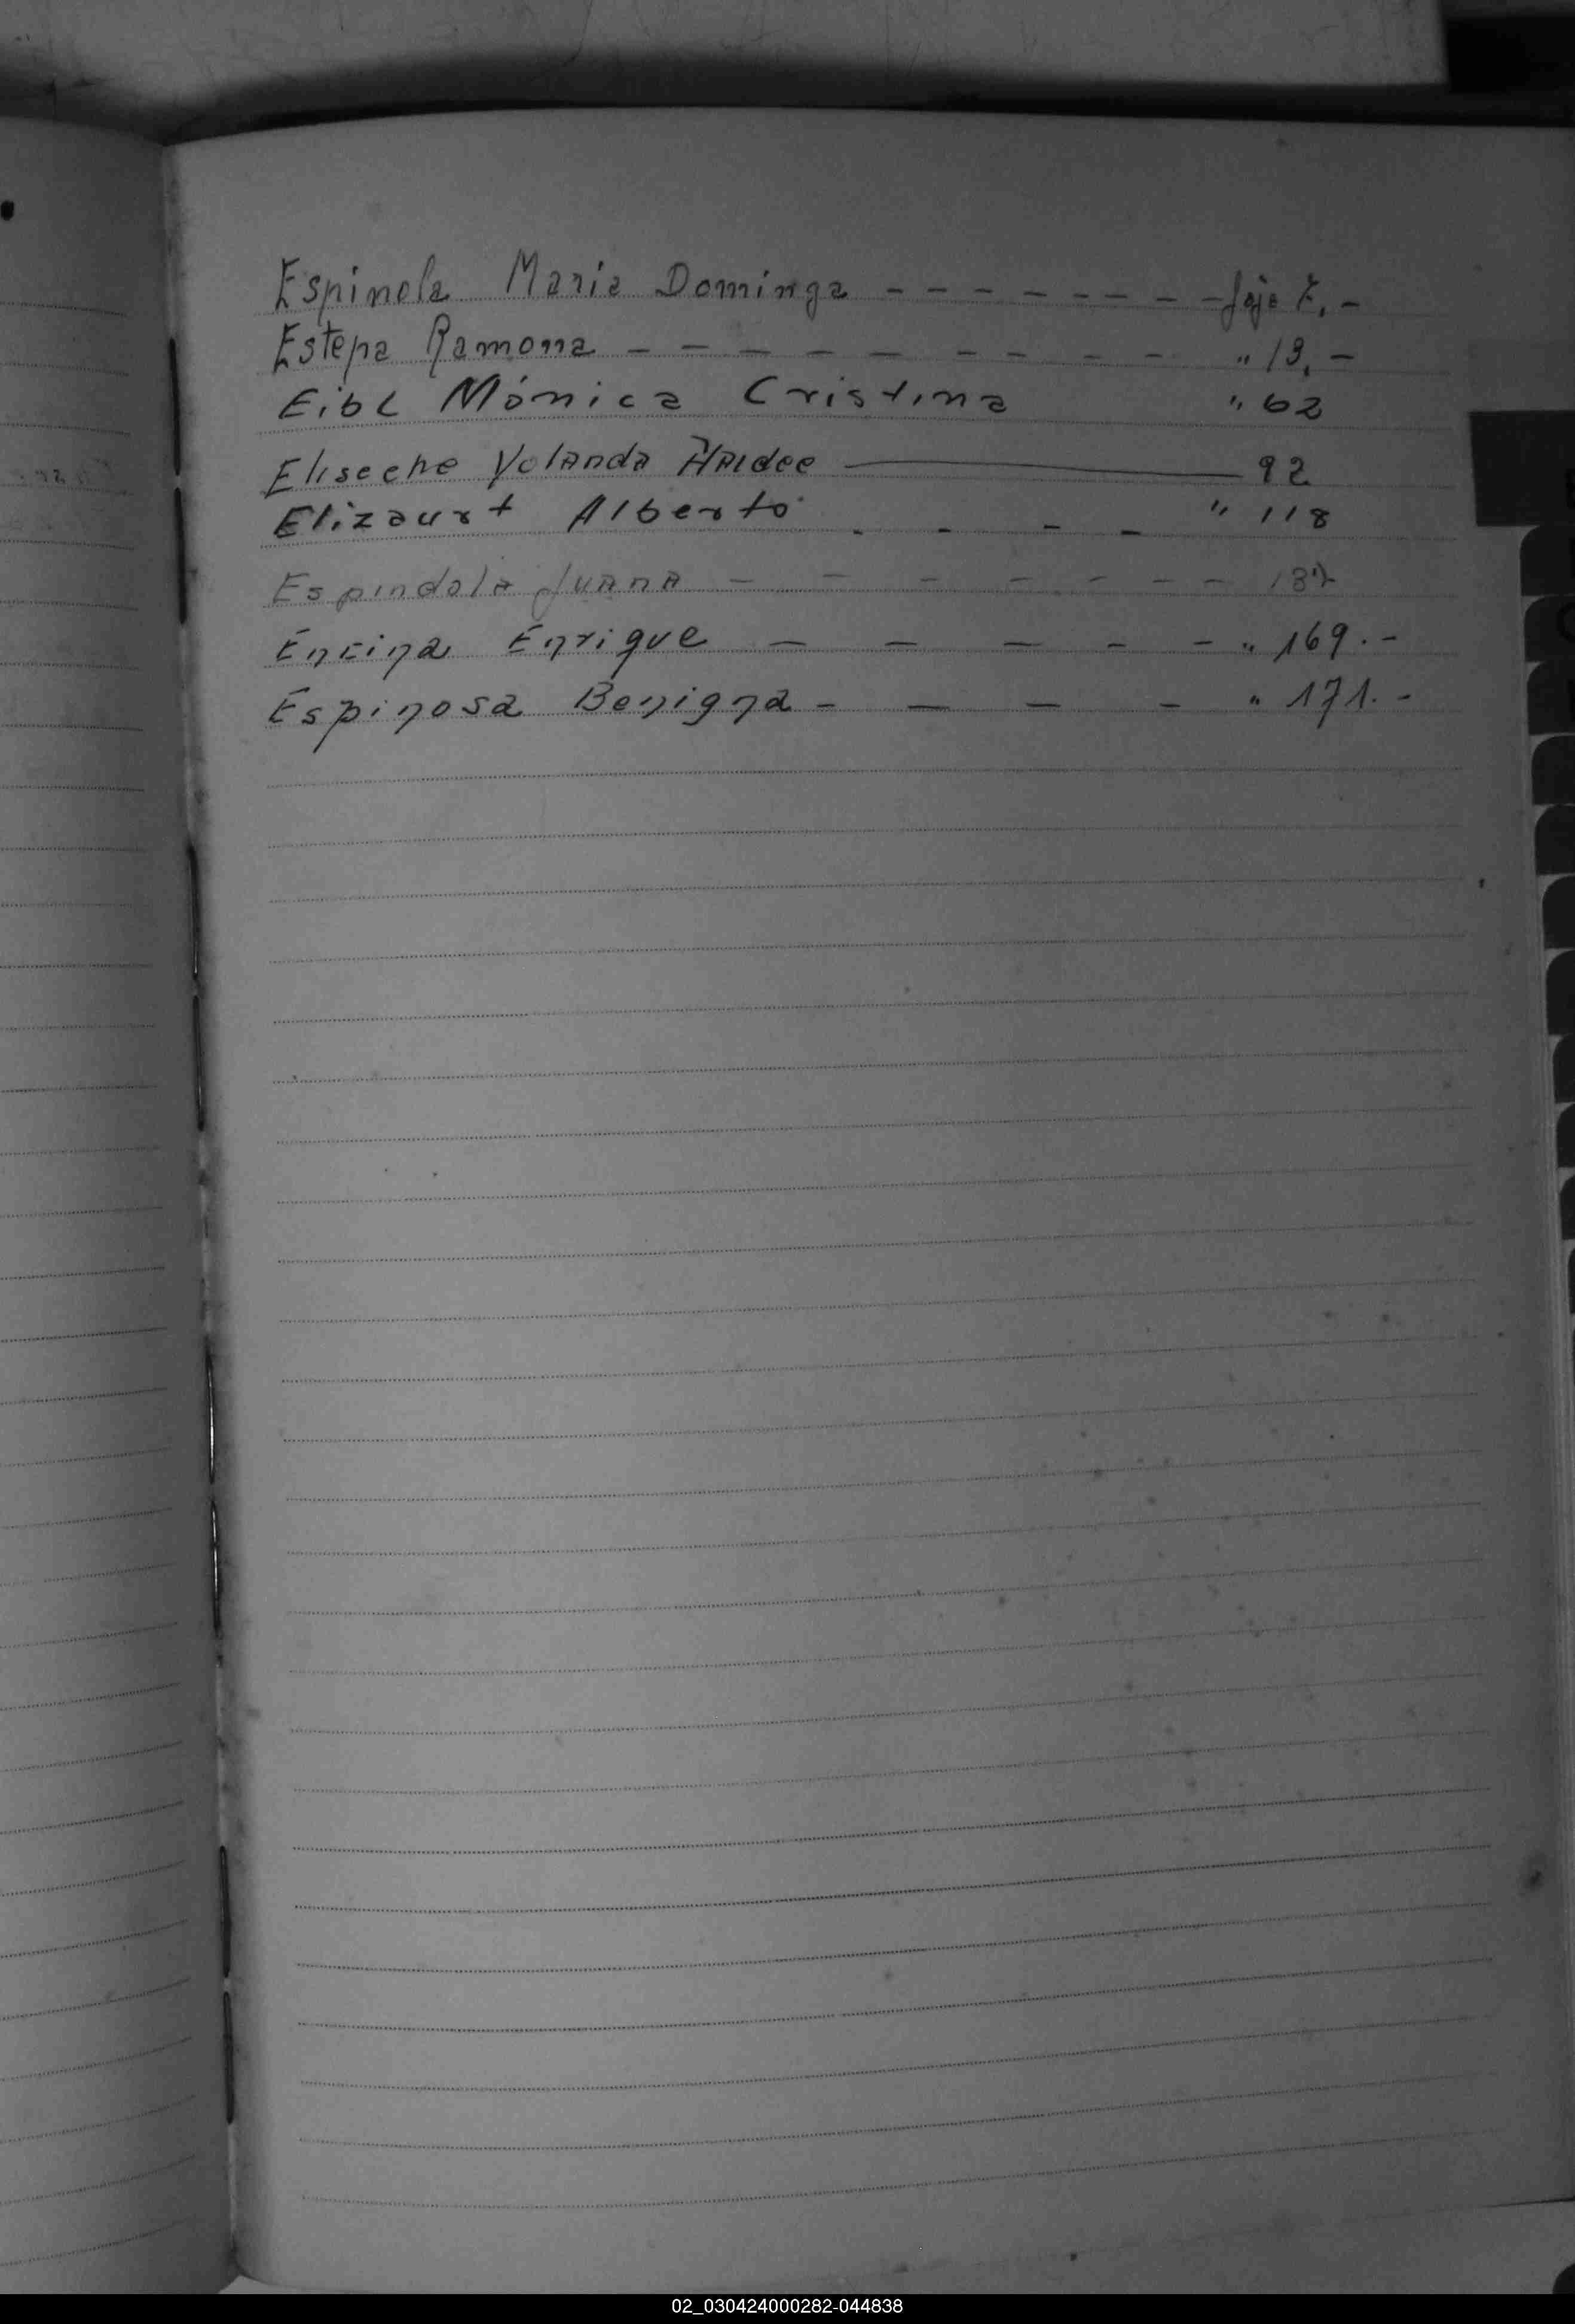 Espinola Maria Dominga - - - - - - - - foja 7. -
Estepa Ramona - - - - - - - - - " 13. -
Eibl Mónica Cristina " 62
Eliseche Yolanda Haidee — 92
Elizaurt Alberto . - - - " 118
Espindola Juana - - - - - - -
Encina Enrique - - - - - " 169. -
Espinosa Benigna - - - - " 171. -
02_030424000282-044838